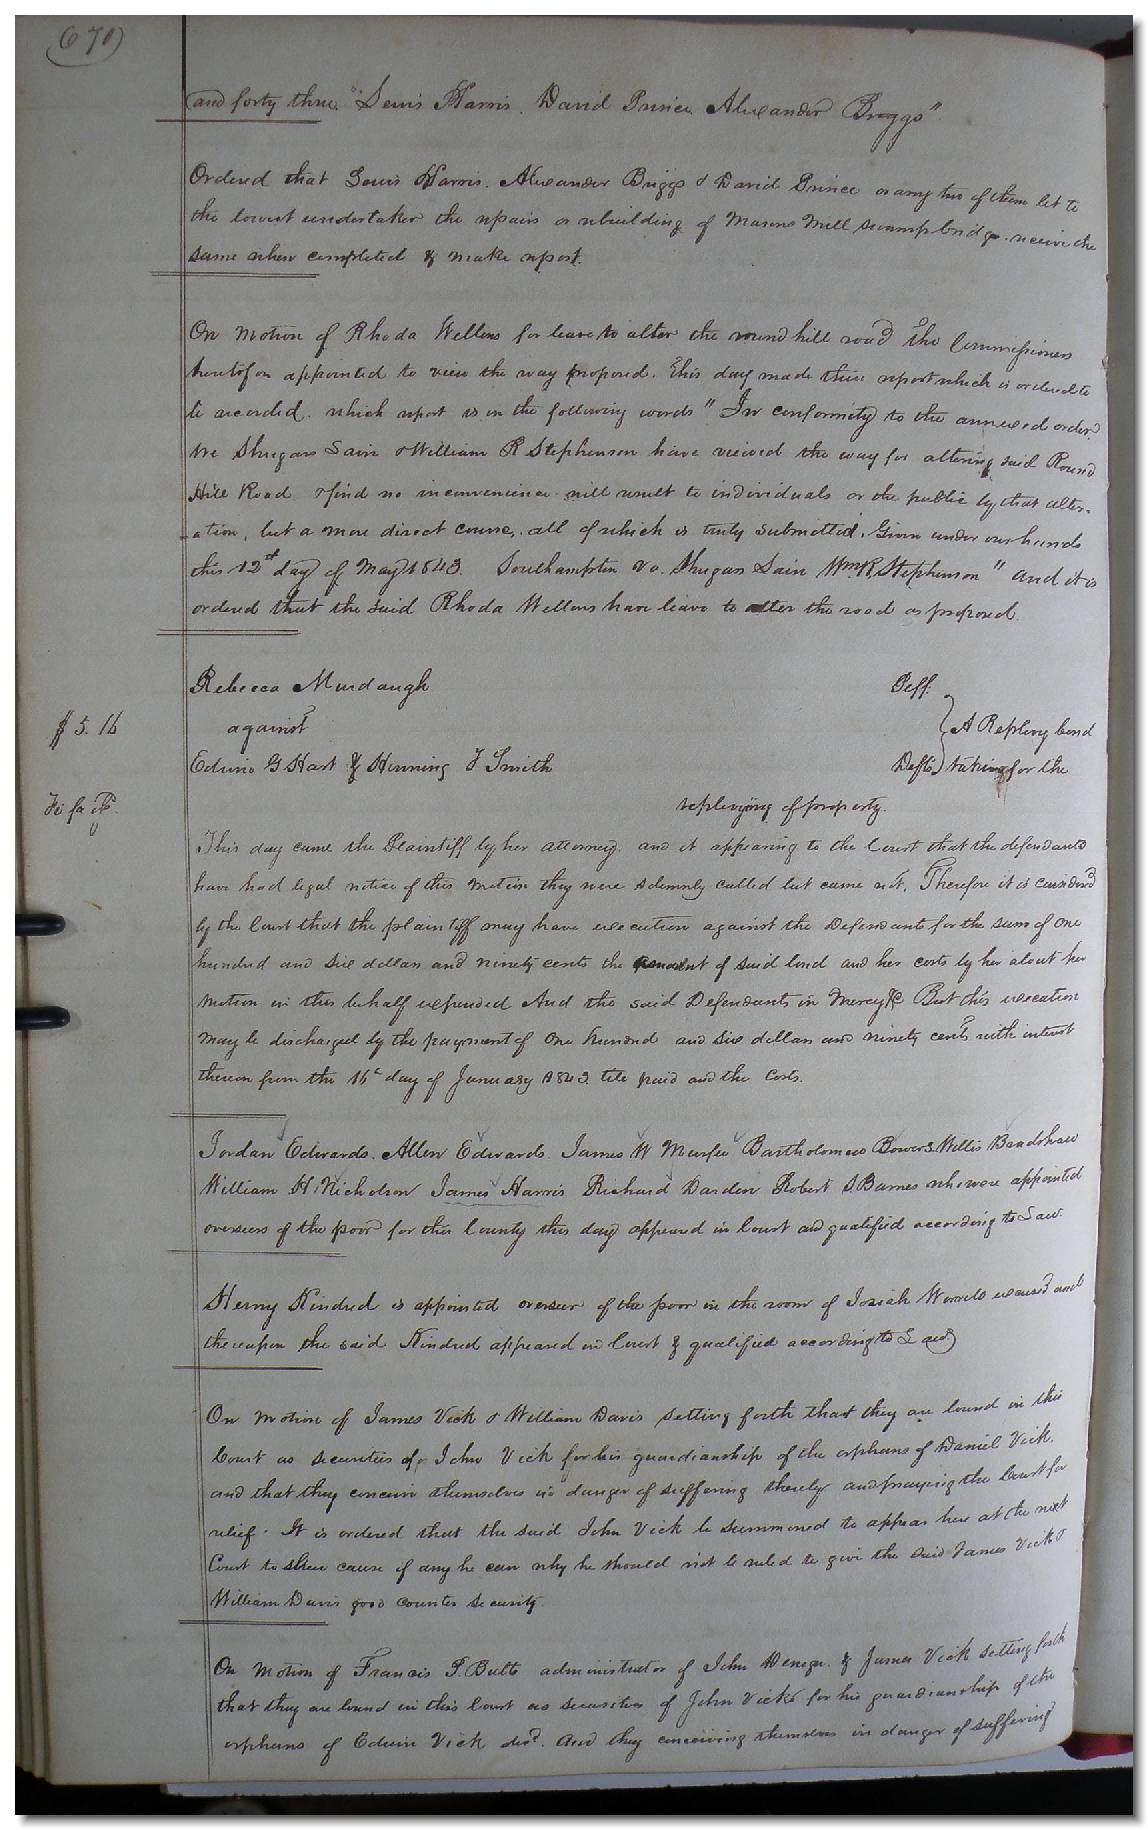 (670)
and forty three "Lewis Harris, David Prince Alexander Briggs"
Ordered that Lewis Harris, Alexander Briggs & David Prince or any two of them let to
the lowest undertaker the repairs or rebuilding of Masons Mill swamp bridge receive the
same when completed & make report.
On motion of Rhoda Wellons for leave to alter the round hill road The Commissioners
heretofore appointed to view the way proposed. This day made their report which is ordered to
be recorded. which report is in the following words "In conformity to the annexed order
We Shugars Lain & William R Stephenson have viewed the way for altering said Round
Hill Road & find no inconvenience will result to individuals or the public by that alter-
ation, but a more direct course, all of which is truly submitted. Given under our hands
this 12th day of May 1843. Southampton Va. Shugars Lain Wm R. Stephenson" and it is
ordered that the said Rhoda Wellons have leave to alter the road as proposed.
Rebecca Murdaugh Plff.
$ 5. 16
against A Replevy bond
Edwin G Hart & Henning T Smith Defts taken for the
Fi fa
replevying of property.
This day came the Plaintiff by her attorney. and it appearing to the Court that the defendants
have had legal notice of this motion they were solemnly called but came not. Therefore it is considered
by the Court that the plaintiff may have execution against the Defendants for the sum of one
hundred and six dollars and ninety cents the of said bond and her costs by her about her
motion in this behalf expended And the said Defendants in Mercy &c But this execution
may be discharged by the payment of One hundred and six dollars and ninety cents with interest
thereon from the 16th day of January 1843 till paid and the costs.
Jordan Edwards. Allen Edwards. James W Murfee Bartholomew Bowers Willis Bradshaw
William H. Nicholson James Harris Richard Darden Robert S. Barnes who were appointed
overseers of the poor for this County this day appeared in Court and qualified according to Law.
Henry Kindred is appointed overseer of the poor in the room of Josiah Worrell excused and
thereupon the said Kindred appeared in Court & qualified according to Law
On motion of James Vick & William Davis setting forth that they are bound in this
Court as securities of John Vick for his guardianship of the orphans of Daniel Vick.
and that they conceive themselves in danger of suffering thereby and praying the Court for
relief. It is ordered that the said John Vick be summoned to appear here at the next
Court to shew cause if any he can why he should not be ruled to give the said James Vick &
William Davis good counter security.
On motion of Francis T. Butts administrator of John & James Vick setting forth
that they are bound in this Court as securities of John Vick for his guardianship of the
orphans of Edwin Vick decd. And they conceiving themselves in danger of suffering